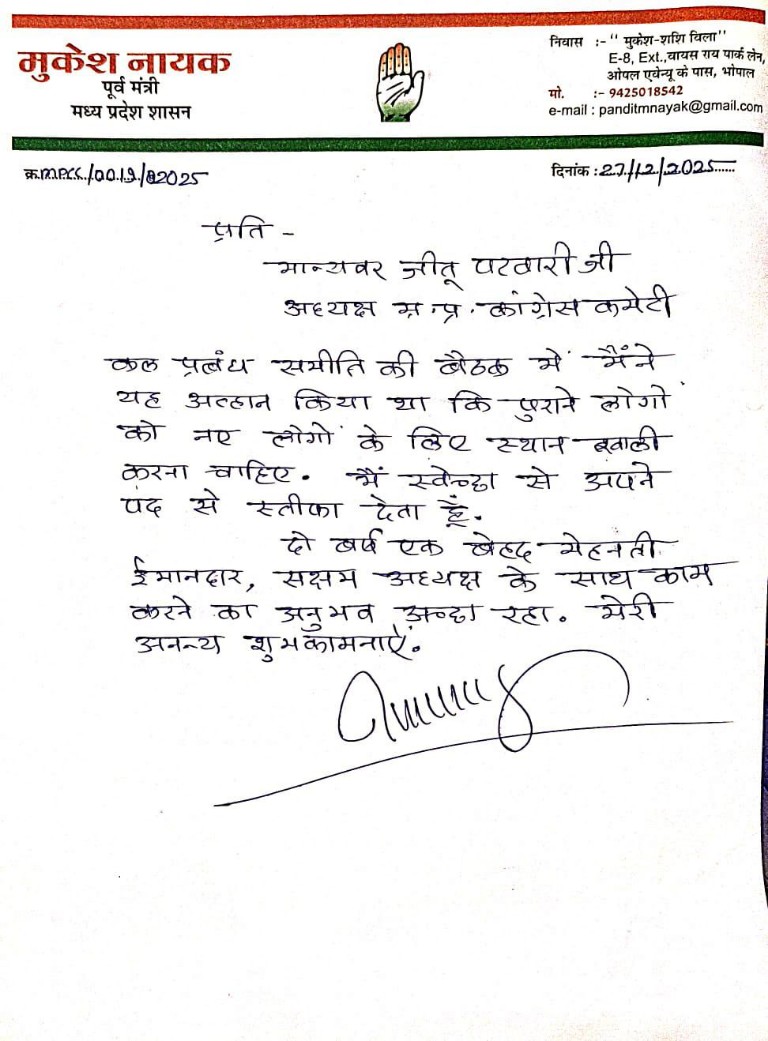 मुकेश नायक
पूर्व मंत्री
मध्य प्रदेश शासन
निवास :- " मुकेश-शशि विला"
E-8, Ext.,वायस राय पार्क लेन,
ओपल एवेन्यू के पास, भोपाल
मो. :- 9425018542
e-mail : panditmnayak@gmail.com
क्र.M.P.C.C./0019/2025
दिनांक :27/12/2025
प्रति -
मान्यवर जीतू पटवारी जी
अध्यक्ष म.प्र. कांग्रेस कमेटी
कल प्रबंध समीति की बैठक में मैंने
यह अव्हान किया था कि पुराने लोगों
को नए लोगों के लिए स्थान खाली
करना चाहिए. मैं स्वेच्छा से अपने
पद से स्तीफा देता हूँ.
दो बर्ष एक बेहद मेहनती
ईमानदार, सक्षम अध्यक्ष के साथ काम
करने का अनुभव अच्छा रहा. मेरी
अनन्य शुभकामनाऐं.